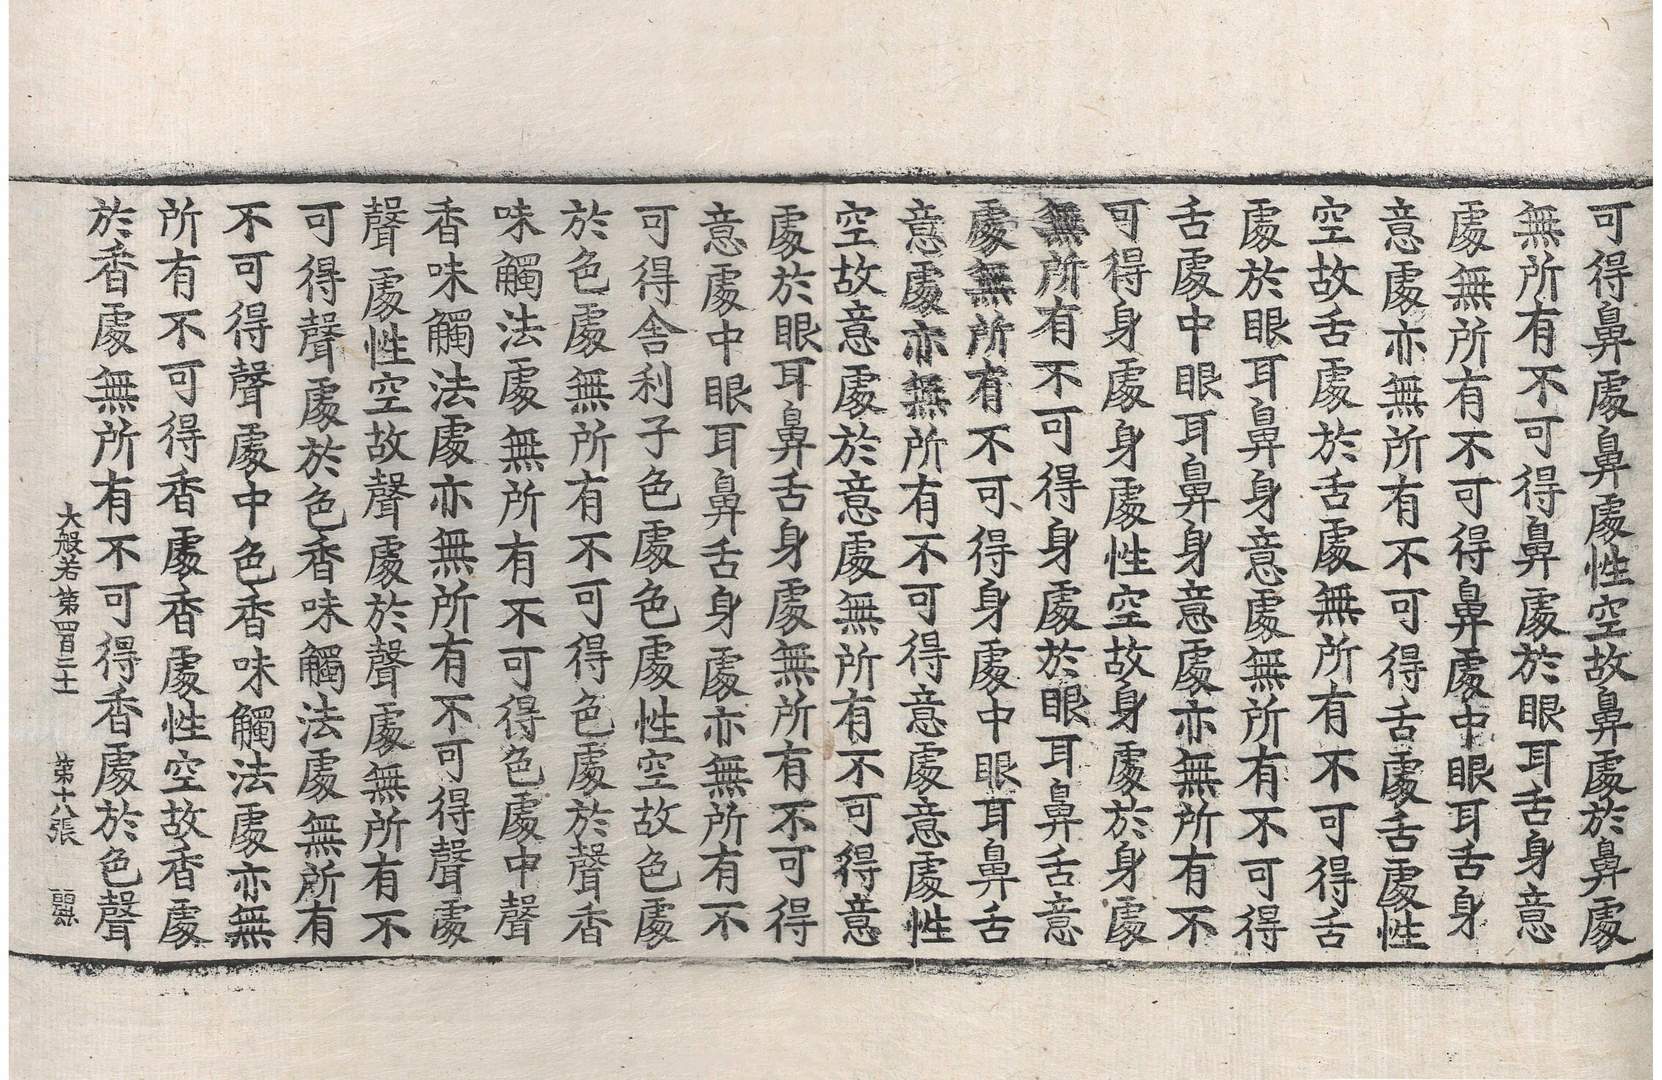 可得鼻處鼻處性空故鼻處於鼻處
無所有不可得鼻處於眼耳舌身意
處無所有不可得鼻處中眼耳舌身
意處亦無所有不可得舌處舌處性
空故舌處於舌處無所有不可得舌
處於眼耳鼻身意處無所有不可得
舌處中眼耳鼻身意處亦無所有不
可得身處身處性空故身處於身處
無所有不可得身處於眼耳鼻舌意
處無所有不可得身處中眼耳鼻舌
意處亦無所有不可得意處意處性
空故意處於意處無所有不可得意
處於眼耳鼻舌身處無所有不可得
意處中眼耳鼻舌身處亦無所有不
可得舍利子色處色處性空故色處
於色處無所有不可得色處於聲香
味觸法處無所有不可得色處中聲
香味觸法處亦無所有不可得聲處
聲處性空故聲處於聲處無所有不
可得聲處於色香味觸法處無所有
不可得聲處中色香味觸法處亦無
所有不可得香處香處性空故香處
於香處無所有不可得香處於色聲
大般若第四百二十一 第十八張